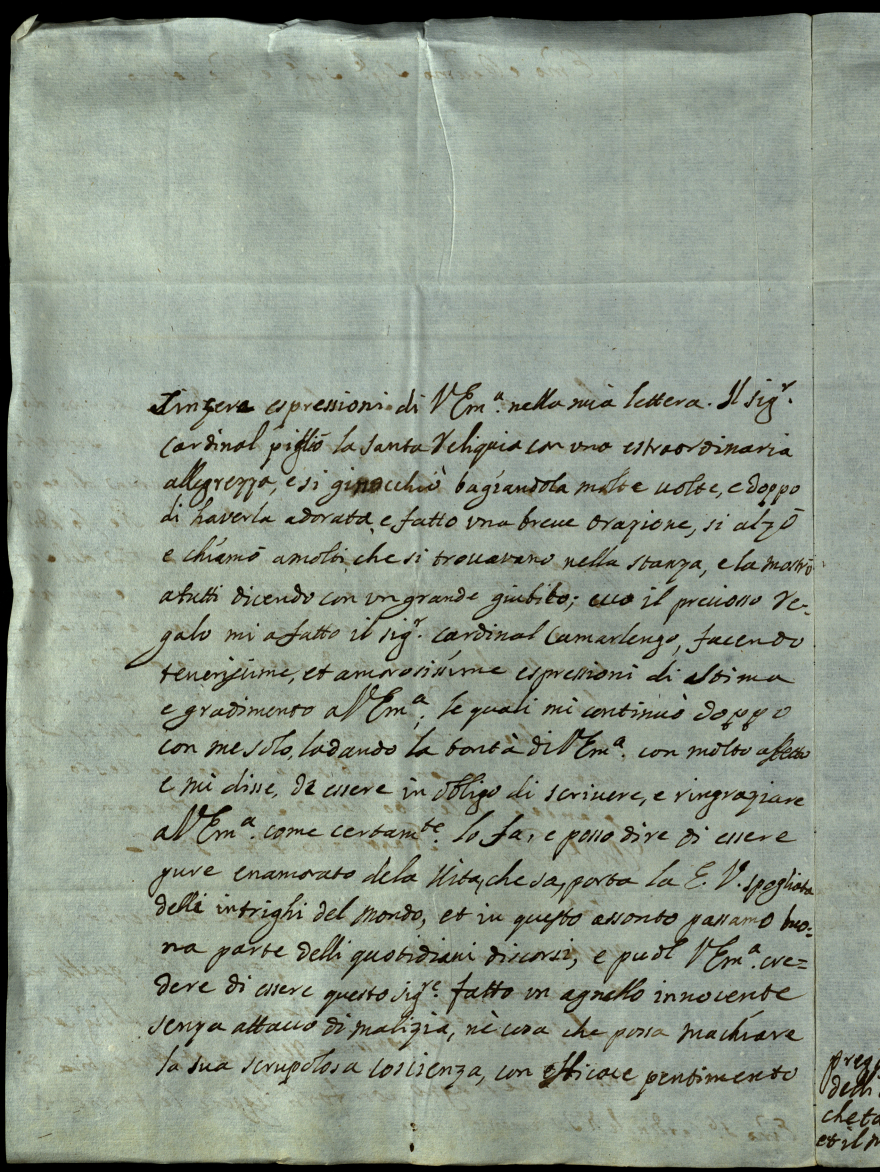 sinçere espressioni di V Em.ª nella mia lettera. Il sig.r
Cardinal piglió la santa Reliquia con una estraordinaria
allegrezza, e si ginocchió bagiandola molte uolte, e doppo
di haverla adorata, e fatto una breue orazione, si alzó
e chiamó a molti, che si trouavano nella stanza, e la mostró
a tutti dicendo con un grande giubilo; ecco il precioso re-
galo mi a fatto il sig.r Cardinal Camarlengo, facendo
tenerissime, et amorosissime espressioni di stima
e gradimento a V Em.ª, le quali mi continuó doppo
con me solo, lodando la bontà di V Em.ª con molto affetto
e mi disse, de essere in obligo di scriuere, e ringraziare
a V Em.ª come certam.te lo fa, e posso dire di essere
pure enamorato dela Uita, che sa, porta la E. V. spogliata
delli intrighi del mondo, et in questo assonto passamo buo=
na parte delli quotidiani discorsi, e puol V Em.ª cre=
dere di essere questo sig.re fatto un agnello innocente
senza attacco di malizia, nè cosa che possa machiare
la sua scrupolosa coscienza, con efficace pentimento
che ta
et il